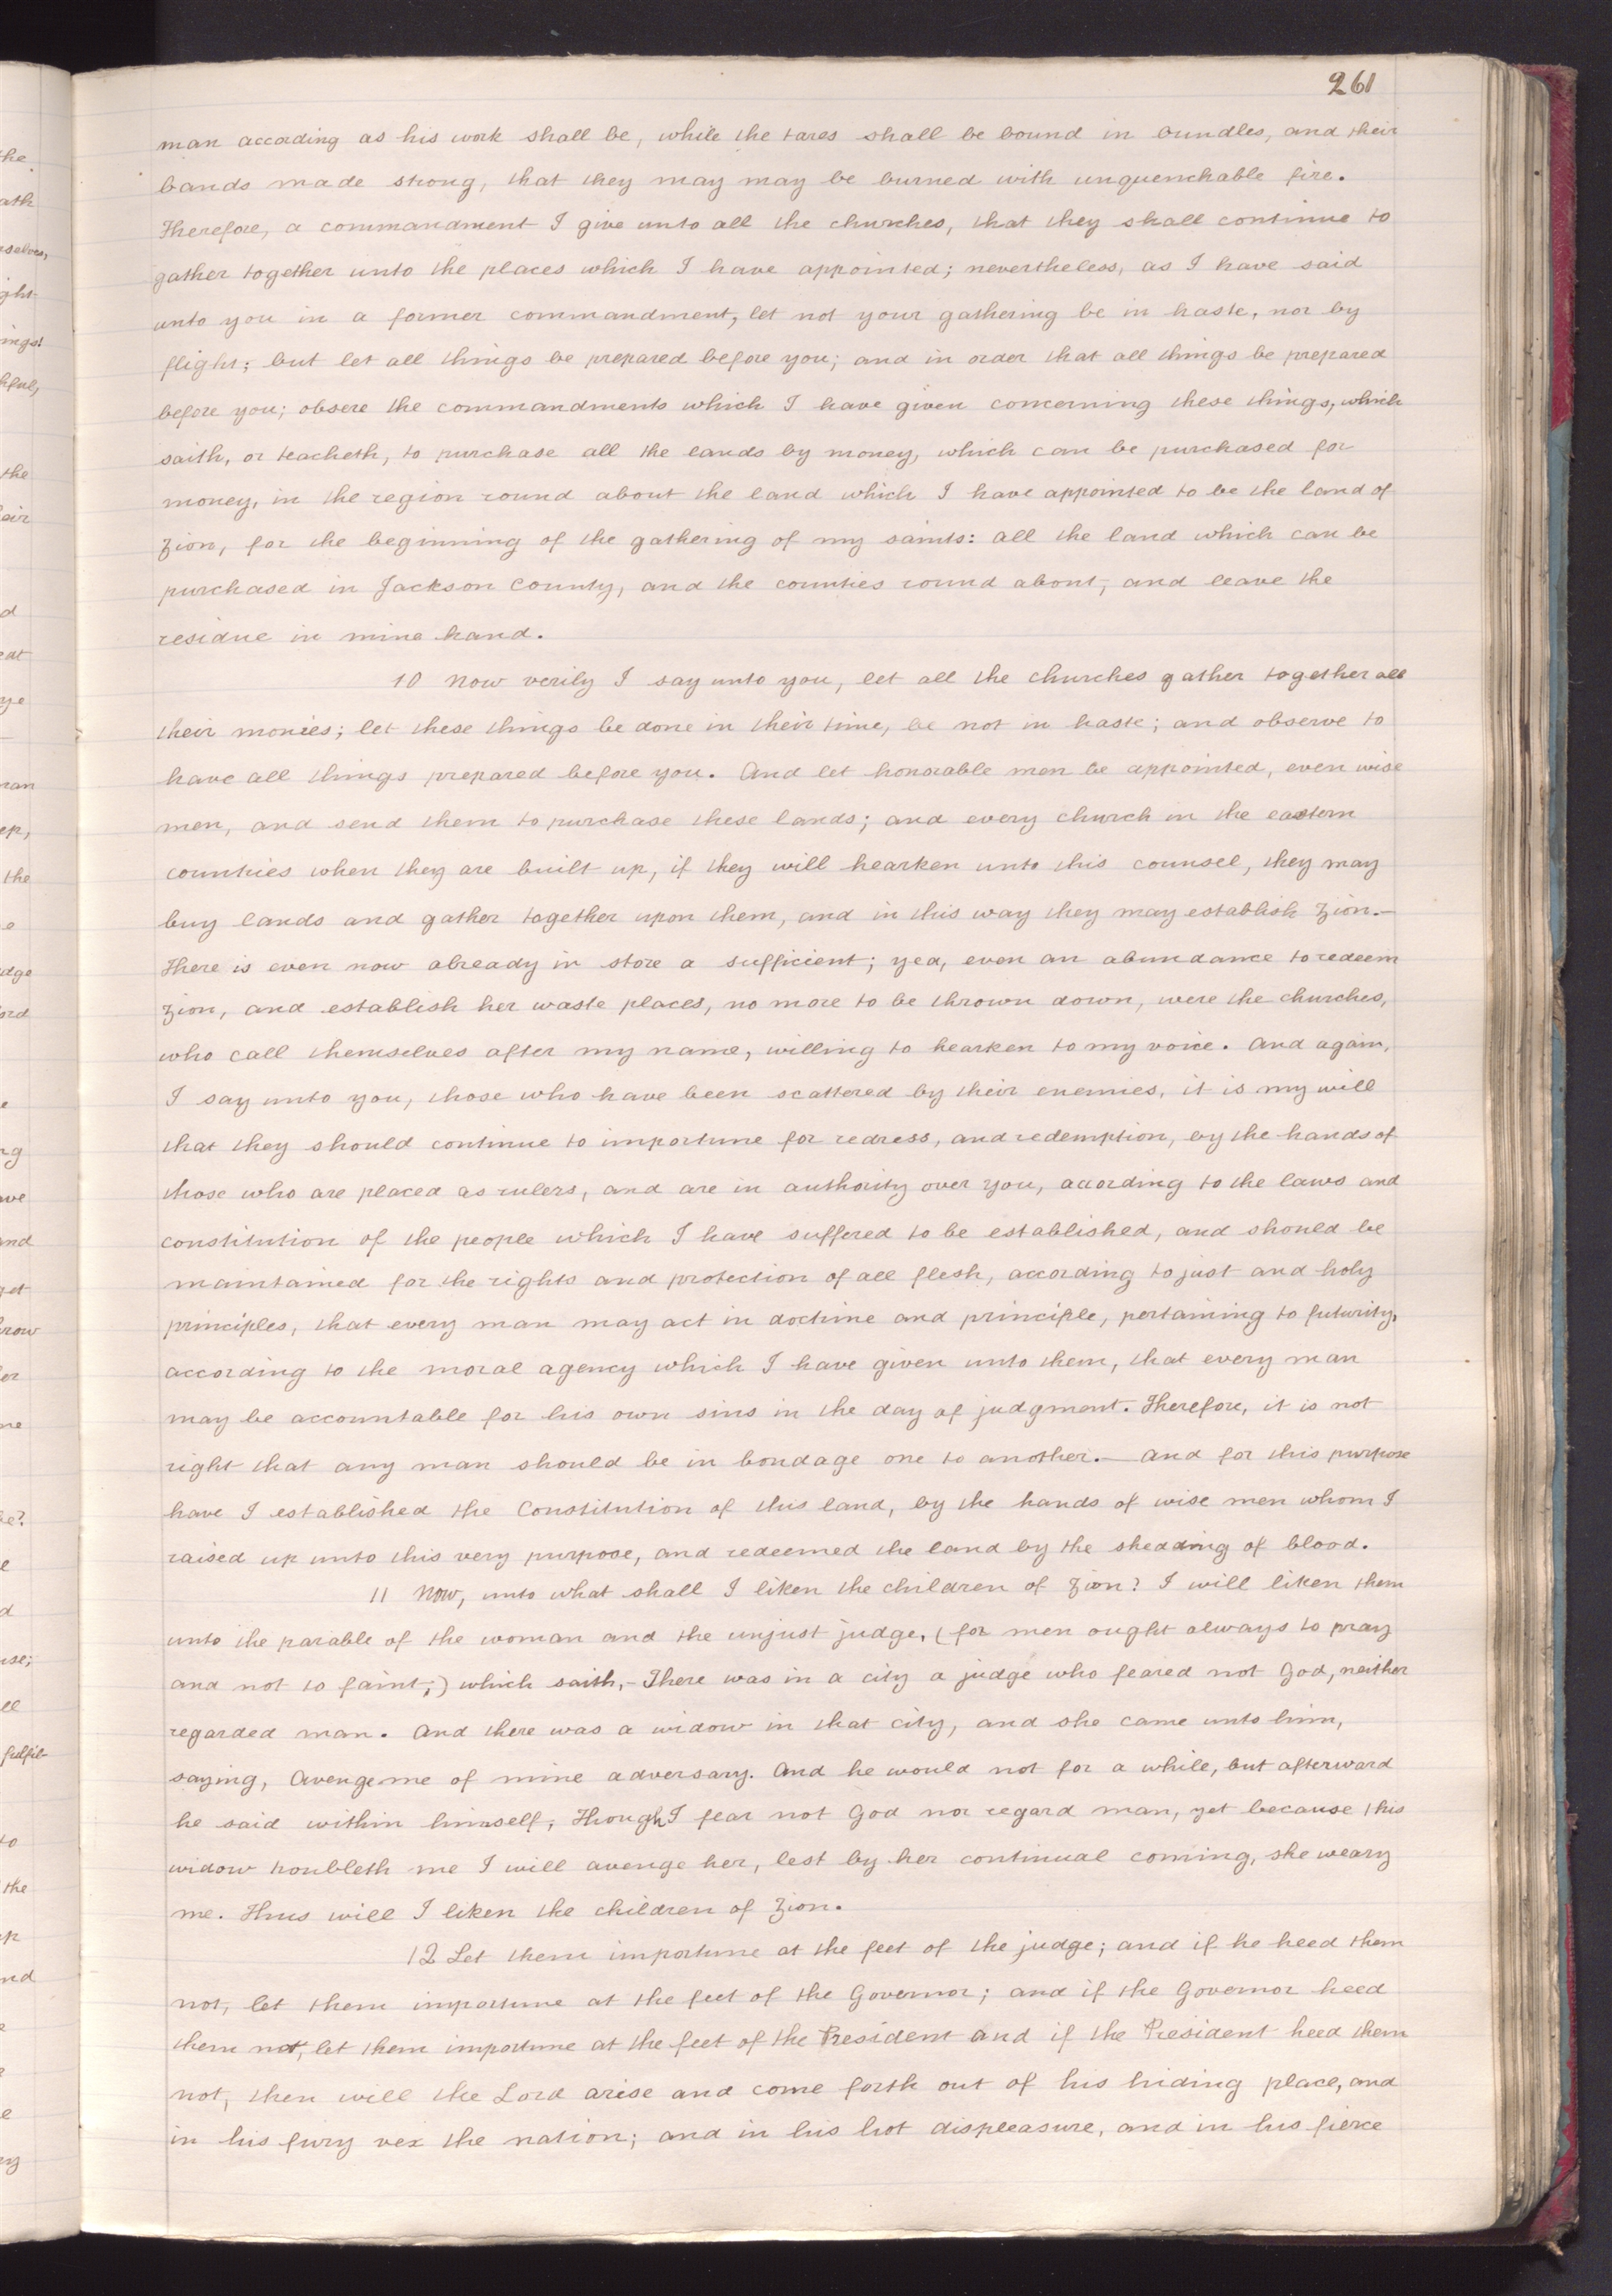 261
man according as his work shall be, while the tares shall be bound in bundles, and their
bands made strong, that they may may be burned with unquenchable fire.
Therefore, a commandment I give unto all the churches, that they shall continue to
gather together unto the places which I have appointed; nevertheless, as I have said
unto you in a former commandment, let not your gathering be in haste, nor by
flight; but let all things be prepared before you; and in order that all things be prepared
before you; obsere the commandments which I have given concerning these things, which
saith, or teacheth, to purchase all the lands by money, which can be purchased for
money, in the region round about the land which I have appointed to be the land of
Zion, for the beginning of the gathering of my saints: all the land which can be
purchased in Jackson County, and the counties round about, and leave the
residue in mine hand.
10 Now verily I say unto you, let all the churches gather together all
their monies; let these things be done in their time, be not in haste; and observe to
have all things prepared before you. And let honorable men be appointed, even wise
men, and send them to purchase these lands; and every church in the eastern
countries when they are built up, if they will hearken unto this counsel, they may
buy lands and gather together upon them, and in this way they may establish Zion.—
There is even now already in store a sufficient; yea, even an abundance to redeem
Zion, and establish her waste places, no more to be thrown down, were the churches,
who call themselves after my name, willing to hearken to my voice. And again,
I say unto you, those who have been scattered by their enemies, it is my will
that they should continue to importune for redress, and redemption, by the hands of
those who are placed as rulers, and are in authority over you, according to the laws and
constitution of the people which I have suffered to be established, and should be
maintained for the rights and protection of all flesh, according to just and holy
principles, that every man may act in doctrine and principle, pertaining to futurity,
according to the moral agency which I have given unto them, that every man
may be accountable for his own sins in the day of judgment. Therefore, it is not
right that any man should be in bondage one to another.— And for this purpose
have I established the Constitution of this land, by the hands of wise men whom I
raised up unto this very purpose, and redeemed the land by the shedding of blood.
11 Now, unto what shall I liken the children of Zion? I will liken them
unto the parable of the woman and the unjust judge, (for men ought always to pray
and not to faint;) which saith,- There was in a city a judge who feared not God, neither
regarded man. And there was a widow in that city, and she came unto him,
saying, Avenge me of mine adversary. And he would not for a while, but afterward
he said within himself, Though I fear not God nor regard man, yet because this
widow troubleth me I will avenge her, lest by her continual coming, she weary
me. Thus will I liken the children of Zion.
12 Let them importune at the feet of the judge; and if he heed them
not, let them importune at the feet of the Governor; and if the Governor heed
them not, let them importune at the feet of the President and if the President heed them
not, then will the Lord arise and come forth out of his hiding place, and
in his fury vex the nation; and in his hot displeasure, and in his fierce